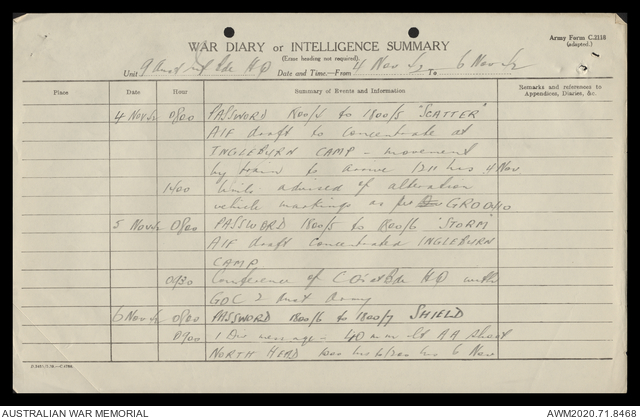 Army Form C.2118
(adapted.)
WAR DIARY or INTELLIGENCE SUMMARY
(Erase heading not required).
Unit 9 Aust Inf Bde HQ Date and Time:—From 4 Nov 42 To 6 Nov 42
Place Date Hour Summary of Events and Information Remarks and references to Appendices, Diaries, &c.
4 Nov 42 0800 PASSWORD 1800/4 to 1800/5 "SCATTER"
AIF draft to concentrate at
INGLEBURN CAMP – movement
by train to arrive 1211 hrs 4 Nov
1400 Units advised of alteration
vehicle markings as per GRO
5 Nov 42 0800 PASSWORD 1800/5 to 1800/6 "STORM"
AIF draft concentrated INGLEBURN
CAMP
0930 Conference of COs at Bde HQ with
GOC 2 Aust Army
6 Nov 42 0800 PASSWORD 1800/6 to 1800/7 SHIELD
0900 1 Div message – 40 mm lt AA shoot
NORTH HEAD hrs 6 Nov
AUSTRALIAN WAR MEMORIAL AWM2020.71.8468